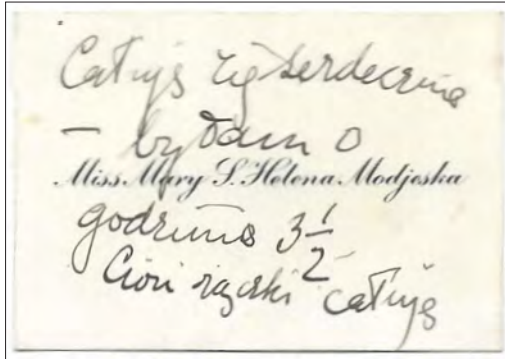 Całuję Cię serdecznie
— byłam o
Miss Mary S. Helena Modjeska
godzinie 3 1/2
Cioci rączki całuję